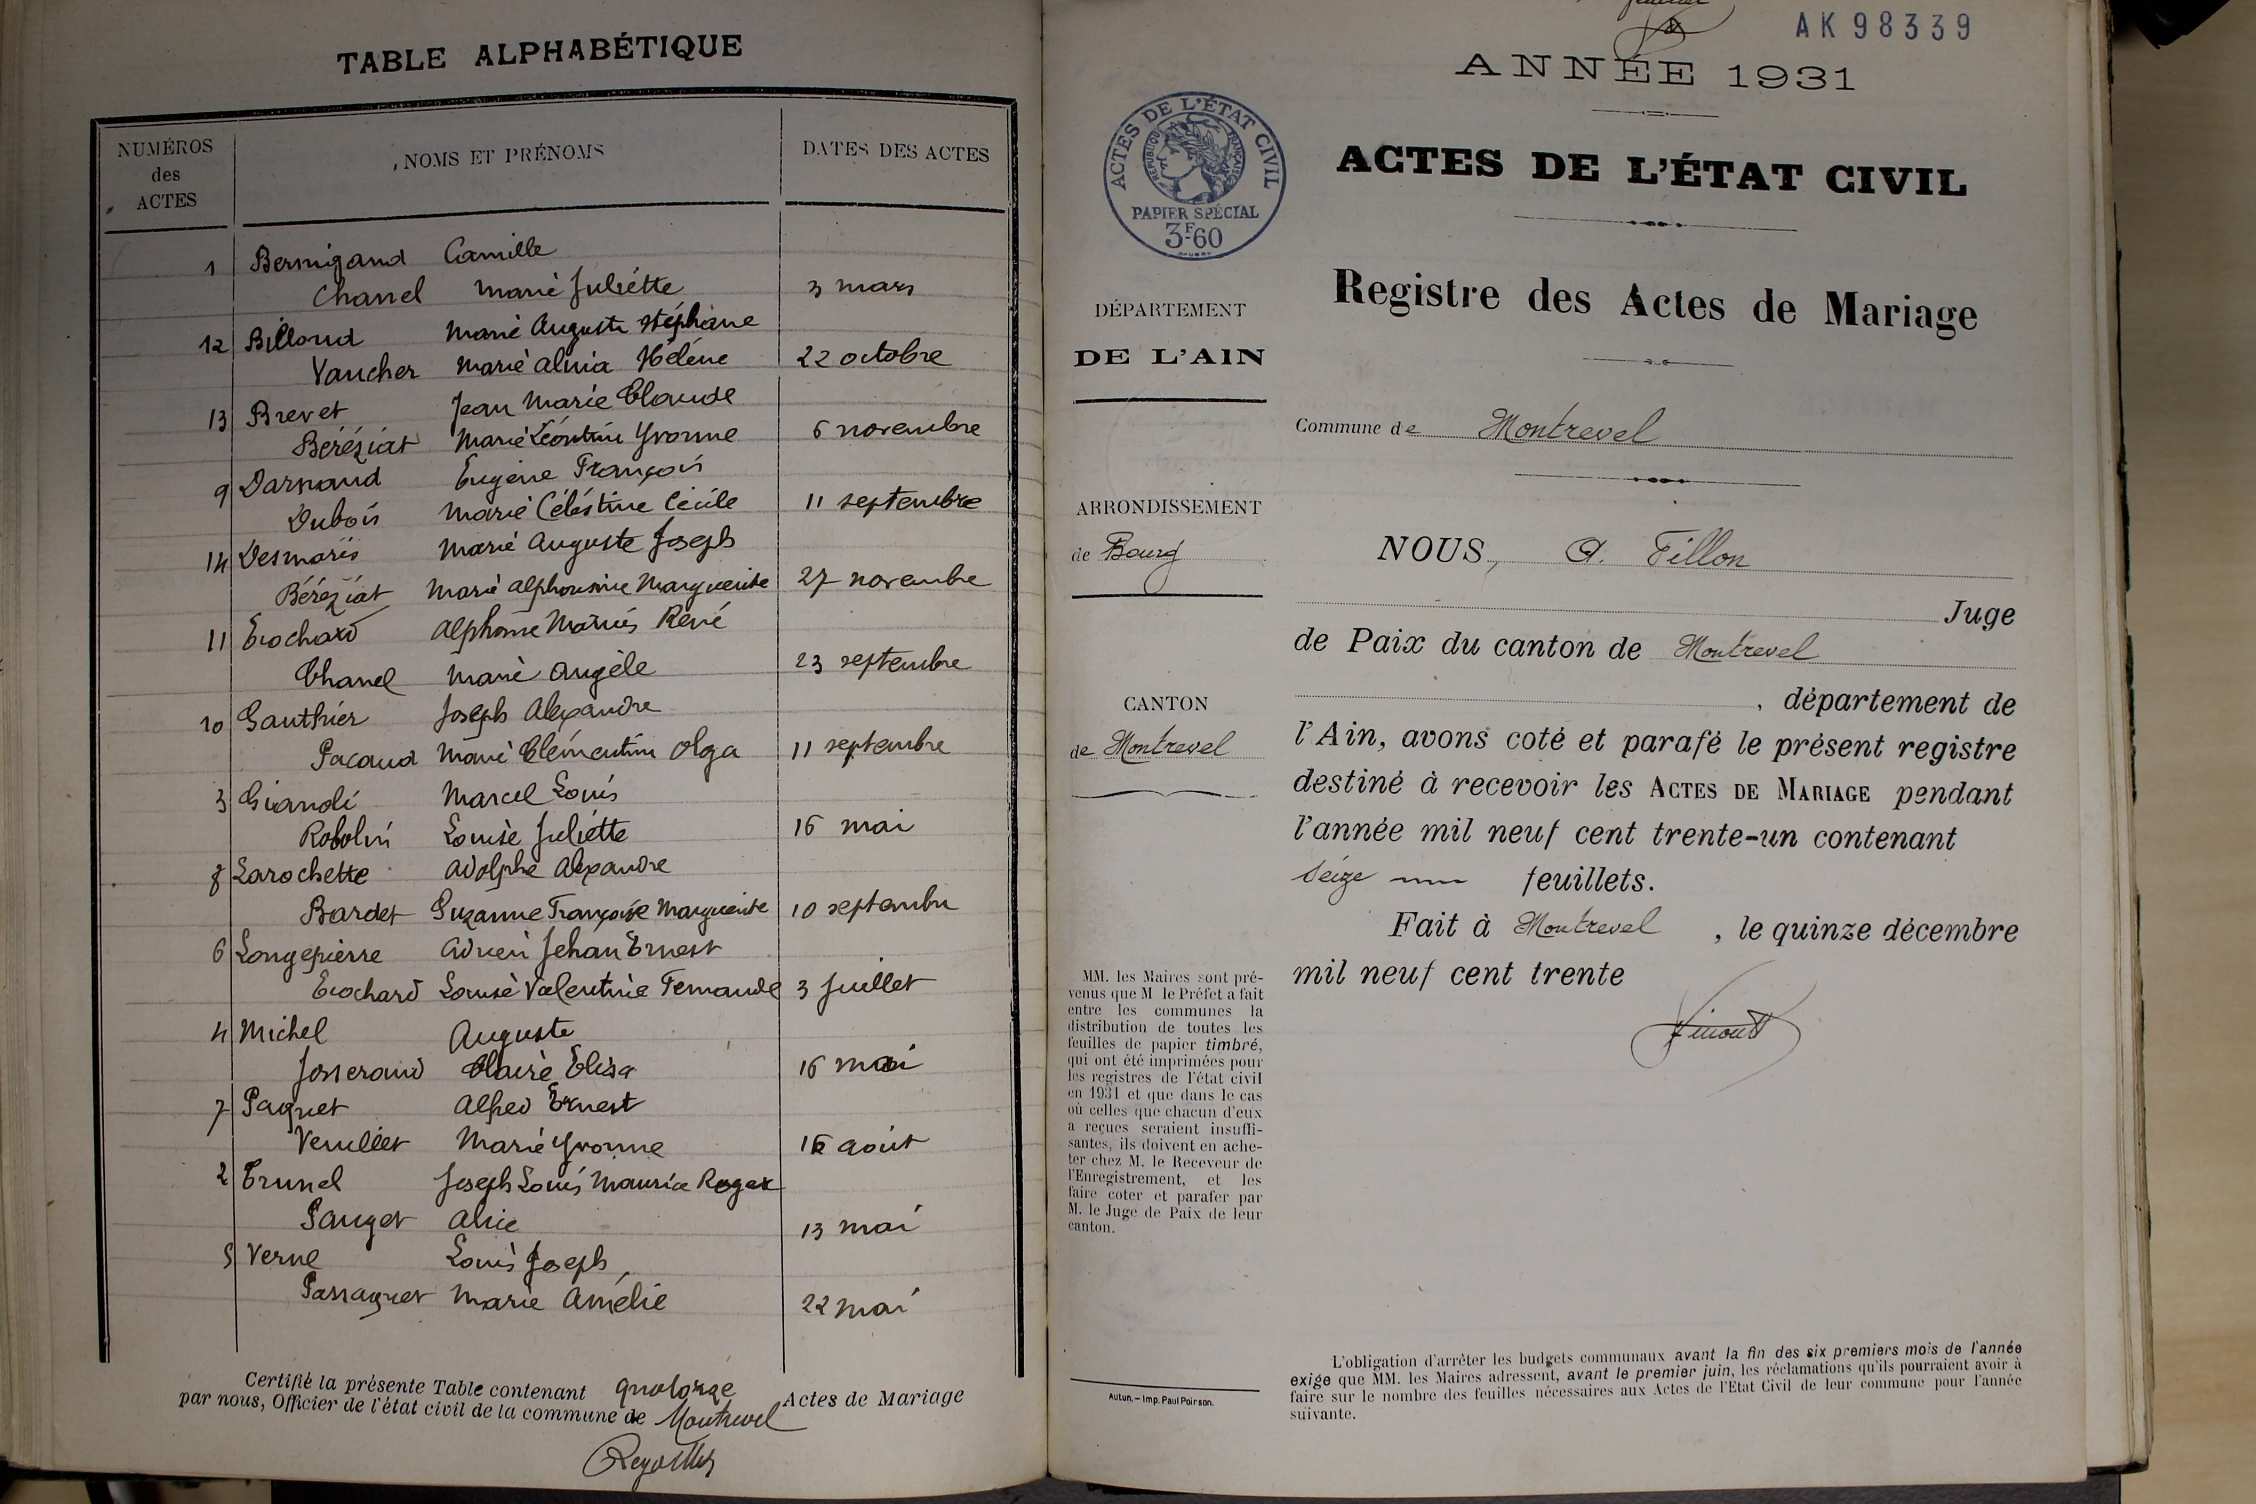 TABLE ALPHABÉTIQUE
NUMÉROS
des
ACTES
NOMS ET PRÉNOMS
DATES DES ACTES
1 Bernigaud Camille
Chanel Marie Juliette 3 mars
12 Billoud Marie Auguste Stéphane
Vaucher Marie Hélène 22 octobre
13 Brevet Jean Marie Claude
Béréziat Marie Léontine Yvonne 6 novembre
9 Darnaud Eugène François
Dubois Marie Célestine Cécile 11 septembre
14 Desmaris Marie Auguste Joseph
Béréziat Marie Alphonsine Marguerite 27 novembre
11 Ecochard Alphonse Marius René
Chanel Marie Angèle 23 septembre
10 Gauthier Joseph Alexandre
Pacaud Marie Clémentine Olga 11 septembre
3 Giandi Marcel Louis
Robolin Louise Juliette 16 mai
8 Larochette Adolphe Alexandre
Bardet Suzanne Françoise Marguerite 10 septembre
6 Longepierre Adrien Jehan Ernest
Ecochard Louise Valentine Fernande 3 juillet
4 Michel Auguste
Josserand Claire Elisa 16 mai
7 Paquet Alfred Ernest
Venillet Marie Yvonne août
2 Brunel Joseph Louis Maurice Roger
Pauget Alice 13 mai
5 Verne Louis Joseph
Passaquet Marie Amélie 22 mai
Certifié la présente Table contenant quatorze Actes de Mariage
par nous, Officier de l'état civil de la commune de Montrevel
AK 98339
ANNÉE 1931
ACTES DE L'ÉTAT CIVIL
RÉPUBLIQUE FRANÇAISE
PAPIER SPÉCIAL
3F60
ACTES DE L'ÉTAT CIVIL
Registre des Actes de Mariage
DÉPARTEMENT
DE L'AIN
Commune de Montrevel
ARRONDISSEMENT
de Bourg
CANTON
de Montrevel
MM. les Maires sont pré-
venus que M le Préfet a fait
entre les communes la
distribution de toutes les
feuilles de papier timbré,
qui ont été imprimées pour
les registres de l'état civil
en 1931 et que dans le cas
où celles que chacun d'eux
a reçues seraient insuffi-
santes, ils doivent en ache-
ter chez M. le Receveur de
l'Enregistrement, et les
faire coter et parafer par
M. le Juge de Paix de leur
canton.
Autun. – Imp. Paul Poirson.
NOUS, A. Tillon
Juge
de Paix du canton de Montrevel
, département de
l'Ain, avons coté et parafé le présent registre
destiné à recevoir les ACTES DE MARIAGE pendant
l'année mil neuf cent trente-un contenant
seize feuillets.
Fait à Montrevel , le quinze décembre
mil neuf cent trente
L'obligation d'arrêter les budgets communaux avant la fin des six premiers mois de l'année
exige que MM. les Maires adressent, avant le premier juin, les réclamations qu'ils pourraient avoir à
faire sur le nombre des feuilles nécessaires aux Actes de l'Etat Civil de leur commune pour l'année
suivante.